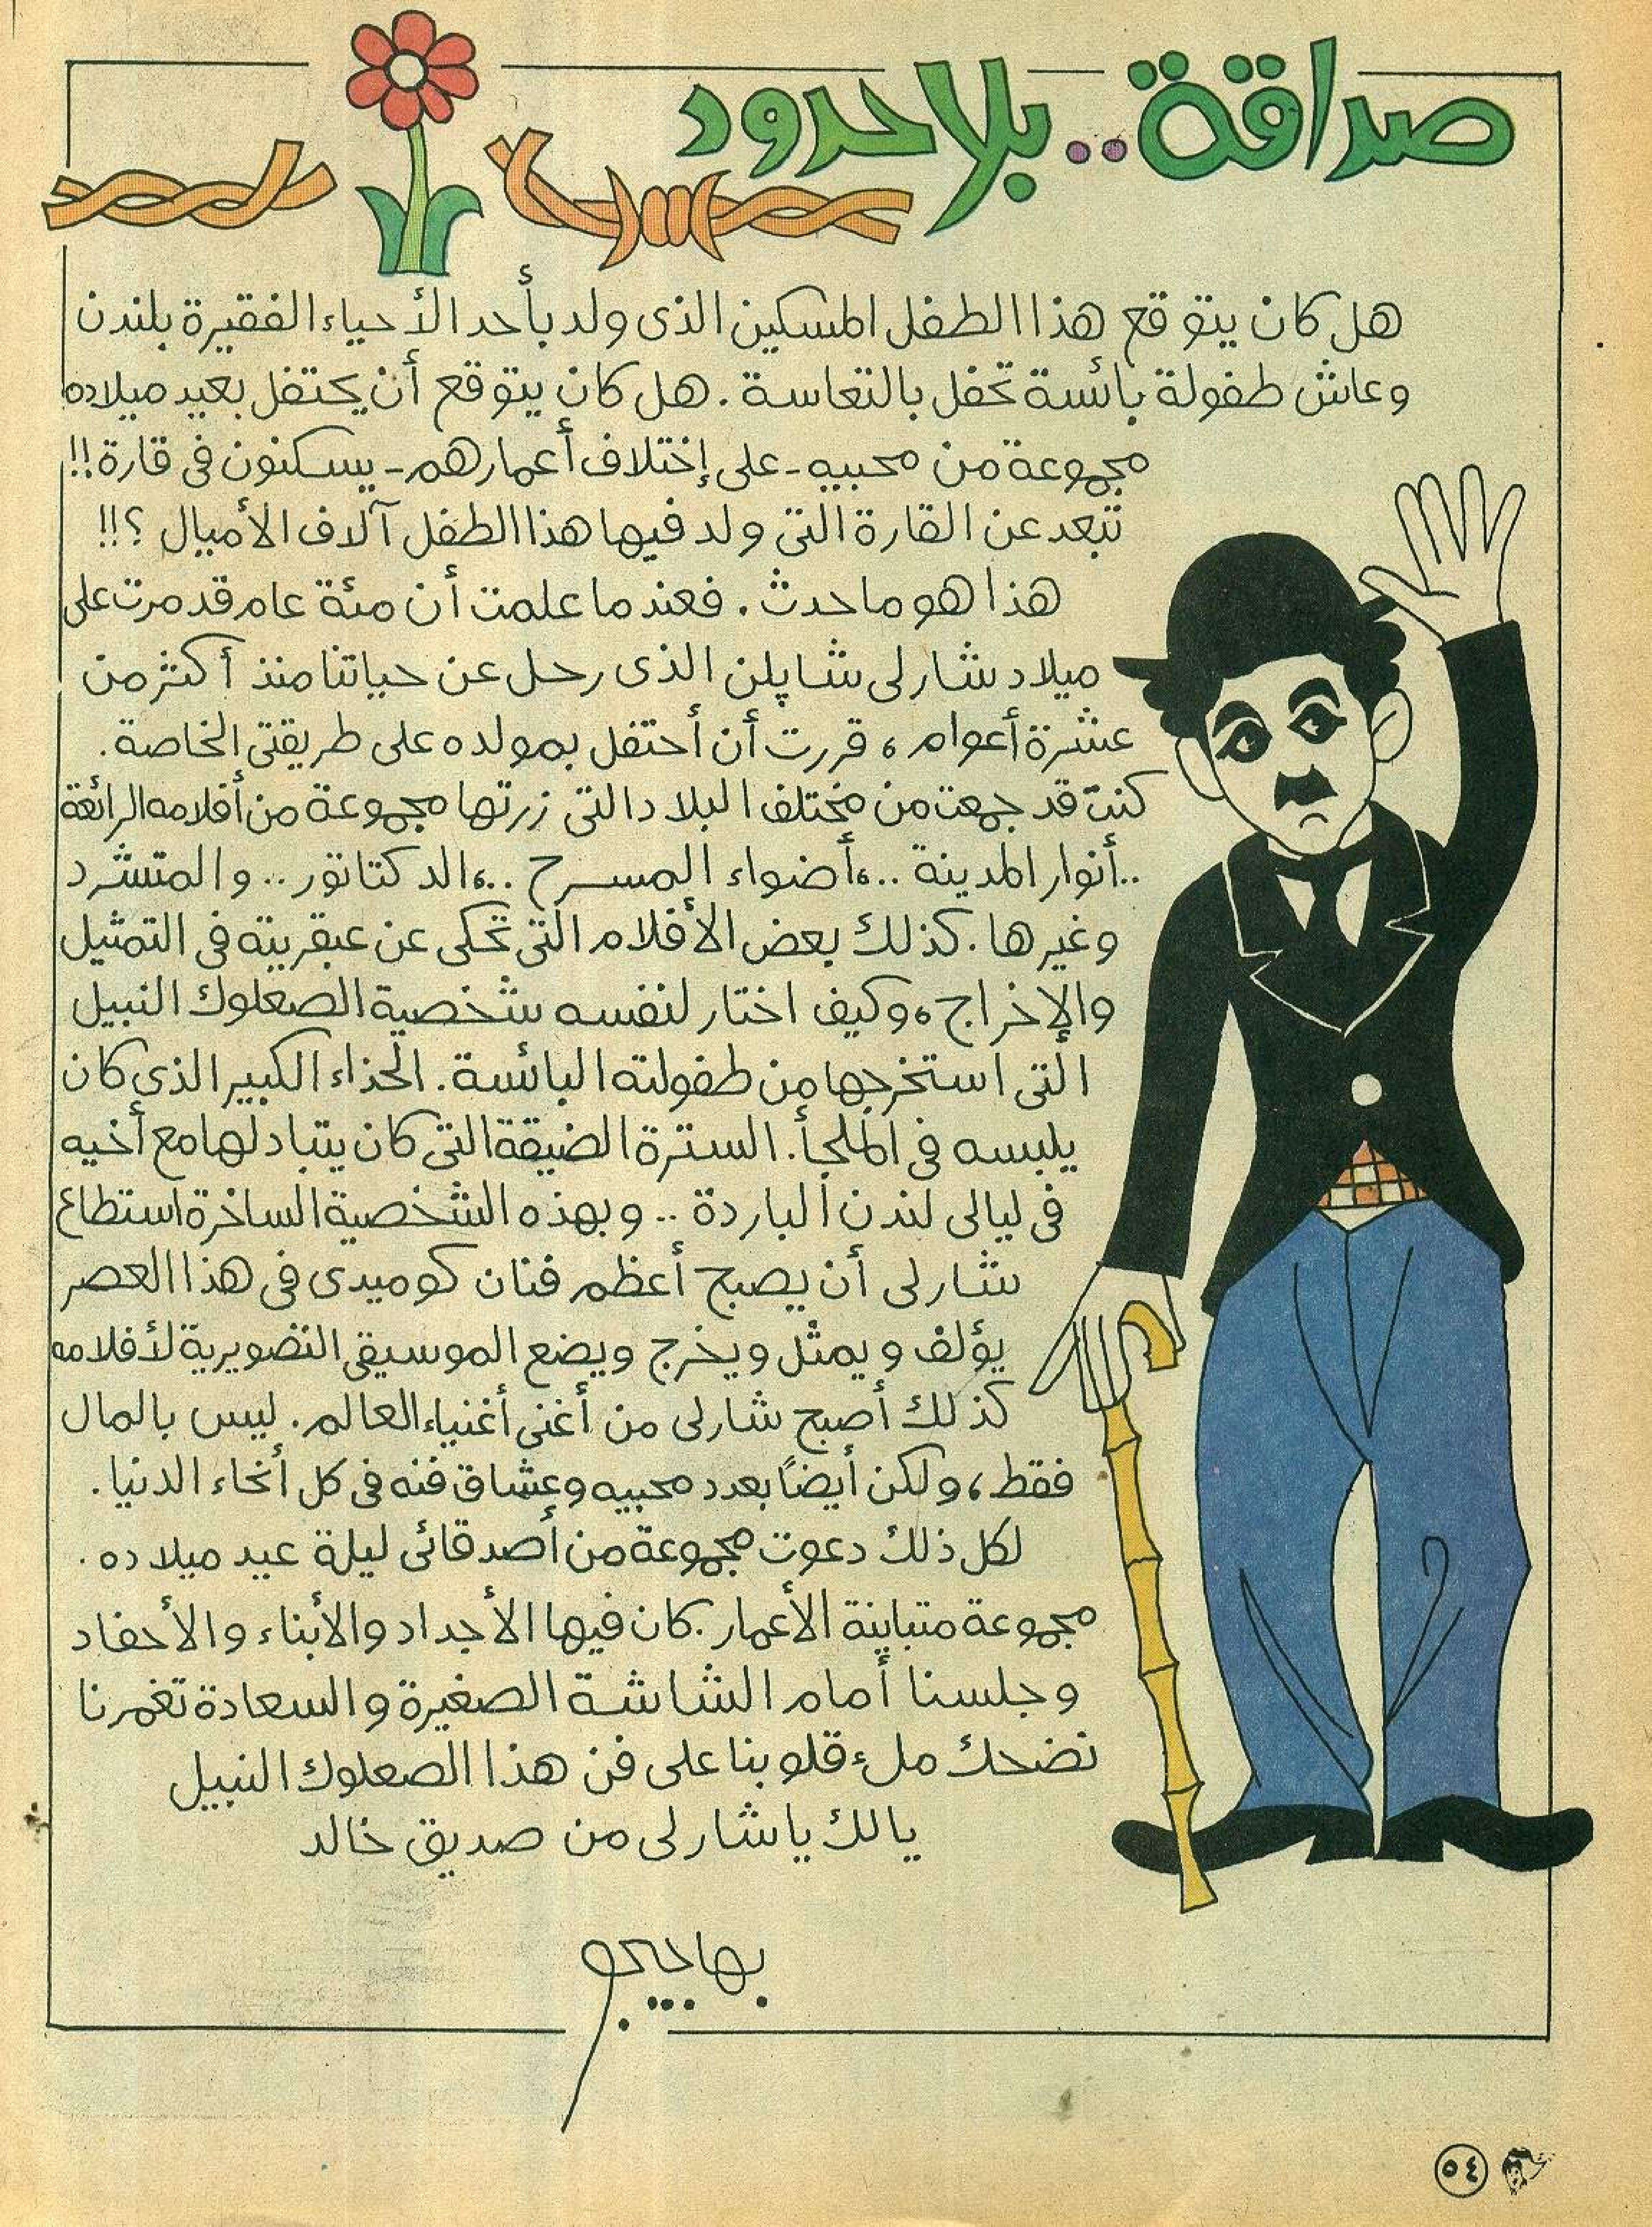 صداقة.. بلا حدود
هل كان يتوقع هذا الطفل المسكين الذى ولد بأحد الأحياء الفقيرة بلندن
وعاش طفولة بائسة تحفل بالتعاسة. هل كان يتوقع أن يحتفل بعيد ميلاده
مجموعة من محبيه - على إختلاف أعمارهم - يسكنون فى قارة!!
تبعد عن القارة التى ولد فيها هذا الطفل آلاف الأميال ؟!!
هذا هو ما حدث. فعندما علمت أن مئة عام قد مرت على
ميلاد شارلى شاپلن الذى رحل عن حياتنا منذ أكثر من
عشرة أعوام، قررت أن أحتفل بمولده على طريقتى الخاصة.
كنت قد جمعت من مختلف البلاد التى زرتها مجموعة من أفلامه الرائعة
..أنوار المدينة ..،أضواء المسرح ..،الدكتاتور .. والمتشرد
وغيرها. كذلك بعض الأفلام التى تحكى عن عبقريته فى التمثيل
والإخراج، وكيف اختار لنفسه شخصية الصعلوك النبيل
التى استخرجها من طفولته البائسة. الحذاء الكبير الذى كان
يلبسه فى الملجأ. السترة الضيقة التى كان يتبادلها مع أخيه
فى ليالى لندن الباردة .. وبهذه الشخصية الساخرة استطاع
شارلى أن يصبح أعظم فنان كوميدى فى هذا العصر
يؤلف ويمثل ويخرج ويضع الموسيقى التصويرية لأفلامه
كذلك أصبح شارلى من أغنى أغنياء العالم. ليس بالمال
فقط، ولكن أيضاً بعدد محبيه وعشاق فنه فى كل أنحاء الدنيا.
لكل ذلك دعوت مجموعة من أصدقائى ليلة عيد ميلاده.
مجموعة متباينة الأعمار. كان فيها الأجداد والأبناء والأحفاد
وجلسنا أمام الشاشة الصغيرة والسعادة تغمرنا
نضحك ملء قلوبنا على فن هذا الصعلوك النبيل
يالك يا شارلى من صديق خالد
بهاجيجو
٥٤